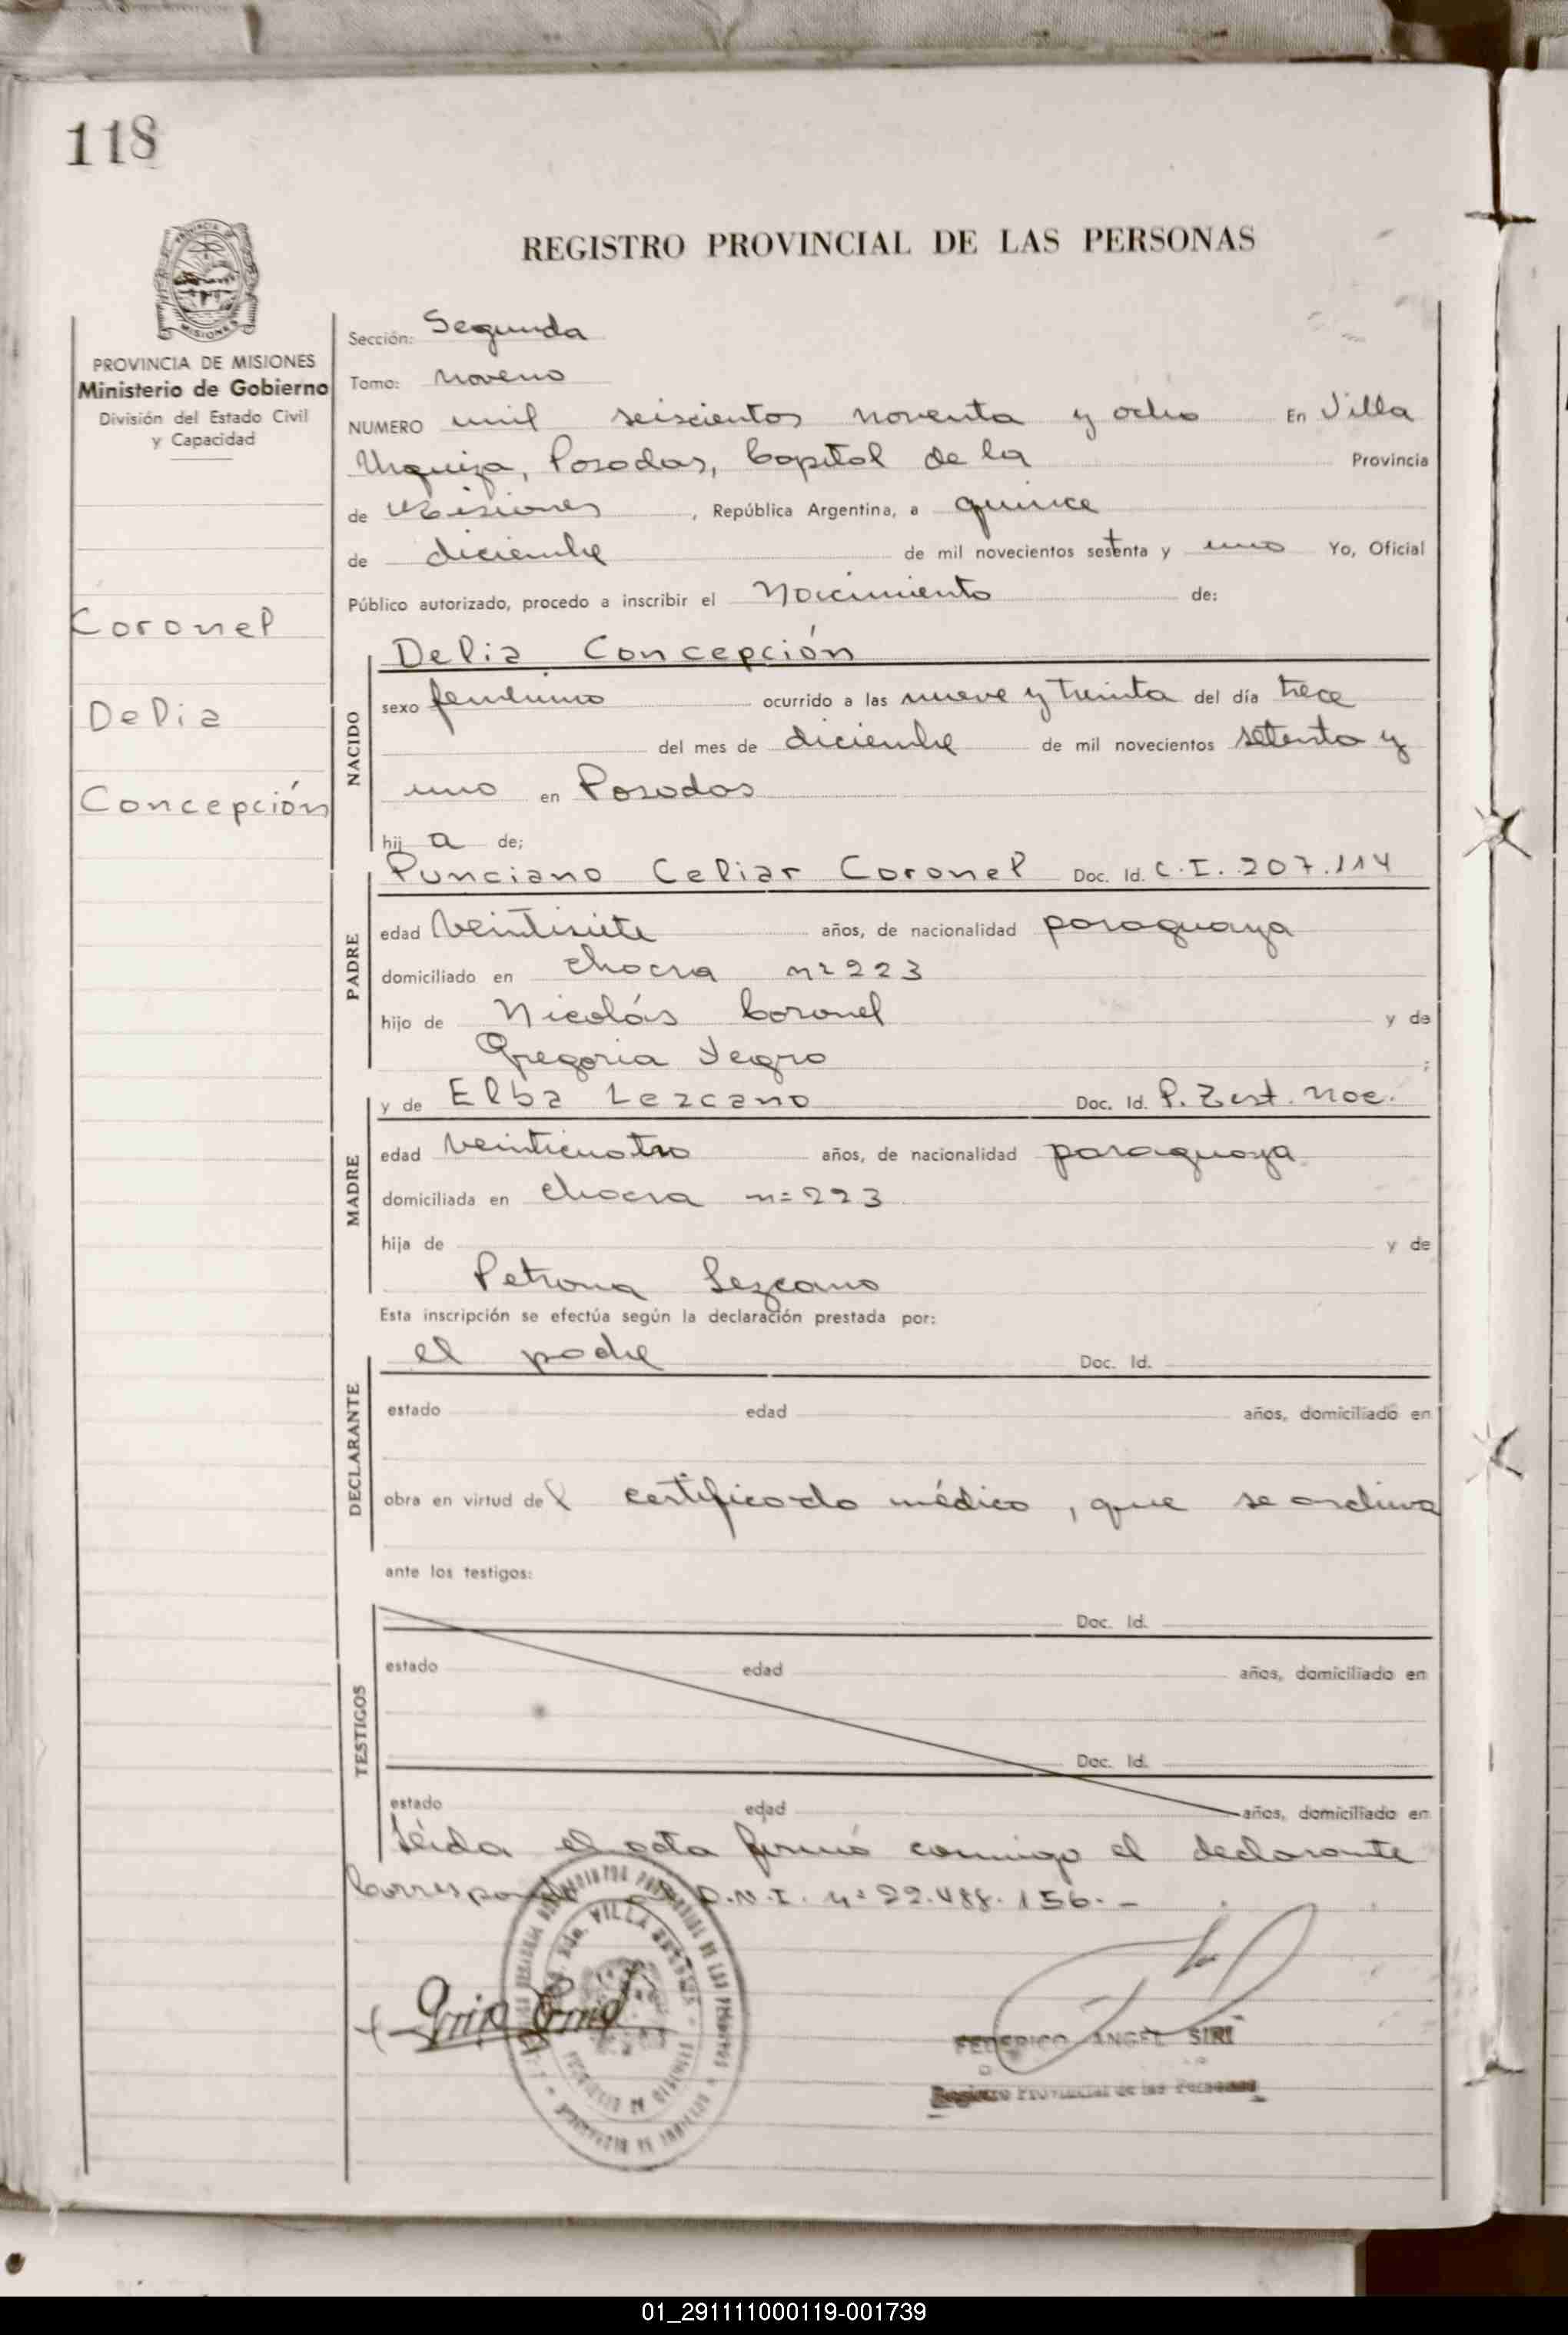 118
REGISTRO PROVINCIAL DE LAS PERSONAS
PROVINCIA DE
MISIONES
PROVINCIA DE MISIONES
Ministerio de Gobierno
División del Estado Civil
y Capacidad
Coronel
Delia
Concepción
Sección: Segunda
Tomo: noveno
NUMERO mil seiscientos noventa y ocho En Villa
Urquiza, Posadas, Capital de la Provincia
de Misiones, República Argentina, a quince
de diciembre de mil novecientos setenta y uno Yo, Oficial
Público autorizado, procedo a inscribir el Nacimiento de:
Delia Concepción
NACIDO
sexo femenino ocurrido a las nueve y treinta del día trece
del mes de diciembre de mil novecientos setenta y
uno en Posadas
hij a de;
Punciano Celiar Coronel Doc. Id. C.I. 207.114
PADRE
edad veintisiete años, de nacionalidad paraguaya
domiciliado en chacra nº 223
hijo de Nicolás Coronel y de
Gregoria Yegro ;
y de Elba Lezcano Doc. Id. P. Nac.
MADRE
edad veinticuatro años, de nacionalidad paraguaya
domiciliada en chacra n= 223
hija de y de
Petrona Lezcano
Esta inscripción se efectúa según la declaración prestada por:
el padre Doc. Id.
DECLARANTE
estado edad años, domiciliado en
obra en virtud del certificado médico, que se archiva
ante los testigos:
Doc. Id.
TESTIGOS
estado edad años, domiciliado en
Doc. Id.
estado edad años, domiciliado en
Leída el acta firmó conmigo el declarante
Corresponde D.N.I. nº 22.488.156.-
VILLA
FEDERICO ANGEL SIRI
Registro Provincial de las Personas
01_291111000119-001739